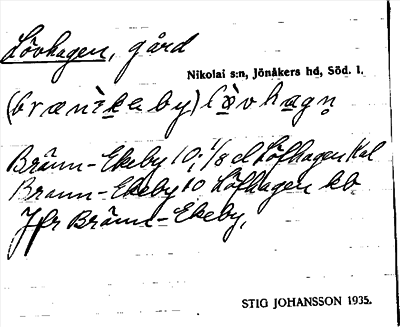 Lövhagen, gård
Nikolai s:n, Jönåkers hd, Söd. l.
(brænìkeby) lö̀vhagn̥
Bränn-Ekeby 10; 1/8 el Löfhagen Kal
Brann-Ekeby 10 Löfhagen kb
Jfr Bränn-Ekeby,
STIG JOHANSSON 1935.